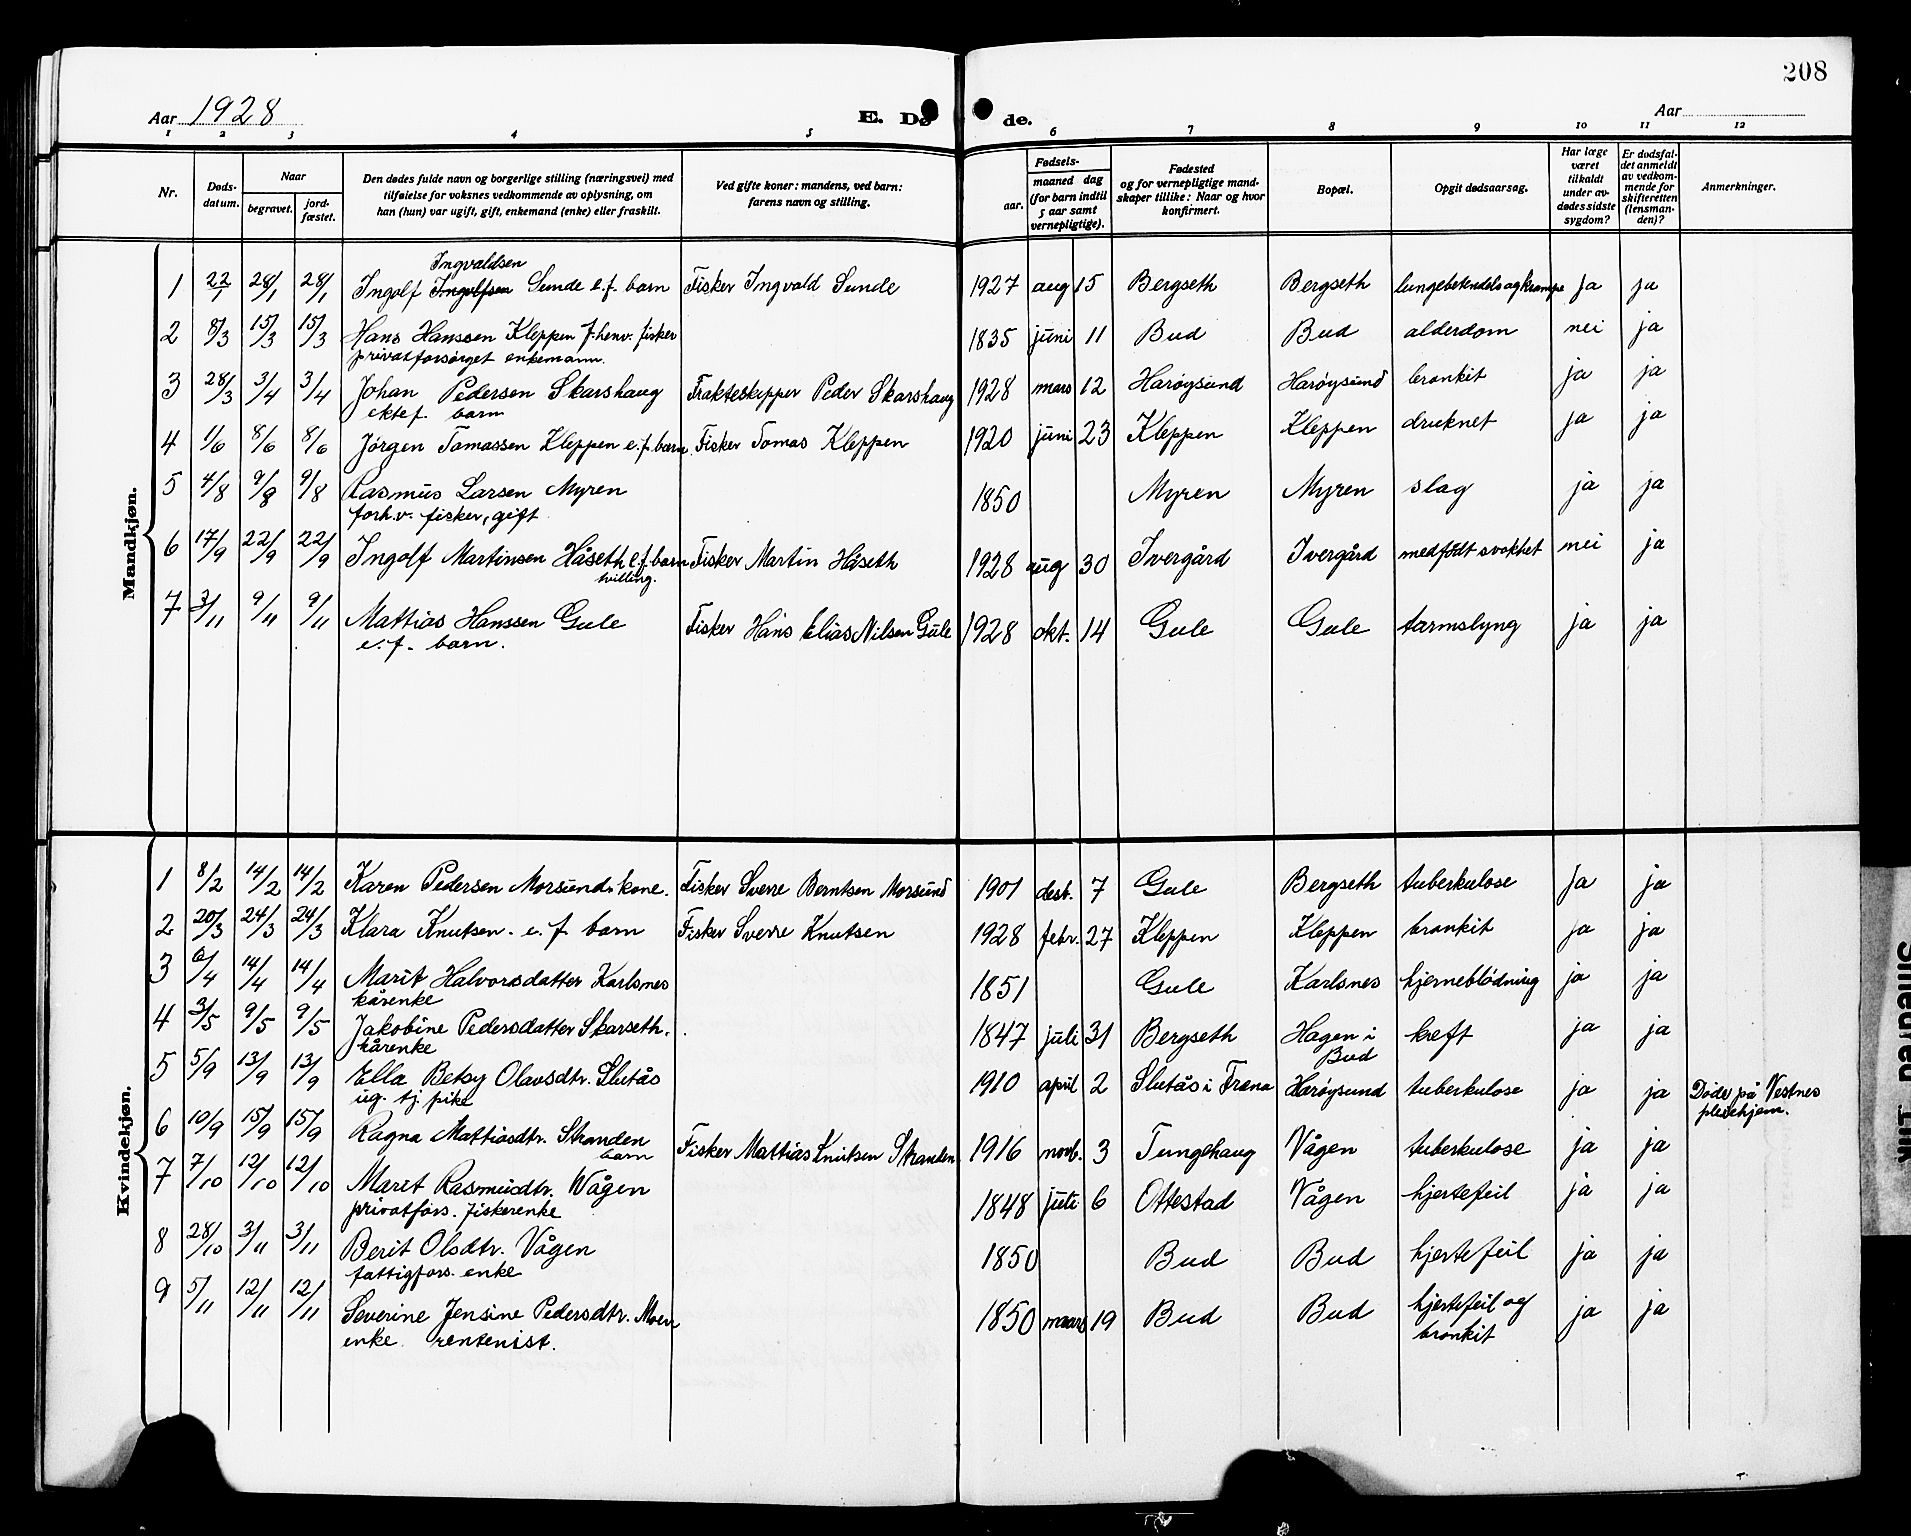 208
Aar 1928 E. Dø de. Aar
1 2 3 4 5 6 7 8 9 10 11 12
Nr. Døds-datum. Naar begravet. jord-fæstet. Den dødes fulde navn og borgerlige stilling (næringsvei) med tilføielse for voksnes vedkommende av oplysning, om han (hun) var ugift, gift, enkemand (enke) eller fraskilt. Ved gifte koner: mandens, ved barn: farens navn og stilling. Fødsels- aar. maaned dag (for barn indtil 5 aar samt vernepligtige). Fødested og for vernepligtige mand-skaper tillike: Naar og hvor konfirmert. Bopæl. Opgit dødsaarsag. Har læge været tilkaldt under av-dødes sidste sygdom? Er dødsfal-det anmeldt av vedkom-mende for skifteretten (lensman-den)? Anmerkninger.
Mandkjøn.
Ingvaldsen
1 22/1 28/1 28/1 Ingolf Ingolfsen Sunde e.f. barn Fisker Ingvald Sunde 1927 aug 15 Bergseth Bergseth lungebetendels og krampe ja ja
2 8/3 15/3 15/3 Hans Hanssen Kleppen f.henv. fisker 1835 juni 11 Bud Bud alderdom nei ja
privatforsørget enkemann.
3 28/3 3/4 3/4 Johan Pedersen Skarshaug Frakteskipper Peder Skarshaug 1928 mars 12 Harøysund Harøysund bronkit ja ja
ektef. barn
4 1/6 8/6 8/6 Jørgen Tomassen Kleppen e.f. barn. Fisker Tomas Kleppen 1920 juni 23 Kleppen Kleppen druknet ja ja
5 4/8 9/8 9/8 Rasmus Larsen Myren 1850 Myren Myren slag ja ja
forh.v. fisker, gift
6 17/9 22/9 22/9 Ingolf Martinsen Håseth e.f. barn Fisker Martin Håseth 1928 aug 30 Ivergård Ivergård medfødt svakhet nei ja
tvilling.
7 3/11 9/11 9/11 Mattias Hanssen Gule Fisker Hans Elias Nilsen Gule 1928 okt. 14 Gule Gule tarmslyng ja ja
e.f. barn.
Kvindekjøn.
1 8/2 14/2 14/2 Karen Pedersen Morsund, kone. Fisker Sverre Berntsen Morsund 1901 desb. 7 Gule Bergseth tuberkulose ja ja
2 20/3 24/3 24/3 Klara Knutsen. e.f. barn Fisker Sverre Knutsen 1928 febr. 27 Kleppen Kleppen bronkit ja ja
3 6/4 14/4 14/4 Marit Halvorsdatter Karlsnes 1851 Gule Karlsnes hjerneblødning ja ja
kårenke
4 3/5 9/5 9/5 Jakobine Pedersdatter Skarseth. 1847 juli 31 Bergseth Hagen i kreft ja ja
kårenke Bud
5 5/9 13/9 13/9 Ella Betsy Olavsdtr. Slutås 1910 april 2 Slutås i Fræna Harøysund tuberkulose ja ja Døde på Vestnes
ug. tj. pike pleiehjem.
6 10/9 15/9 15/9 Ragna Mattiasdtr. Stranden Fisker Mattias Knutsen Stranden 1916 novb. 3 Tungehaug Vågen tuberkulose ja ja
barn
7 7/10 12/10 12/10 Maret Rasmusdtr. Vågen 1848 juli 6 Ottestad Vågen hjertefeil ja ja
privatfors. fiskerenke
8 28/10 3/11 3/11 Berit Olsdtr. Vågen 1850 Bud Bud hjertefeil ja ja
fattigfors. enke
9 5/11 12/11 12/11 Severine Jensine Pedersdtr. Moen 1850 mars 19 Bud Bud hjertefeil og ja ja
enke. rentenist. bronkit